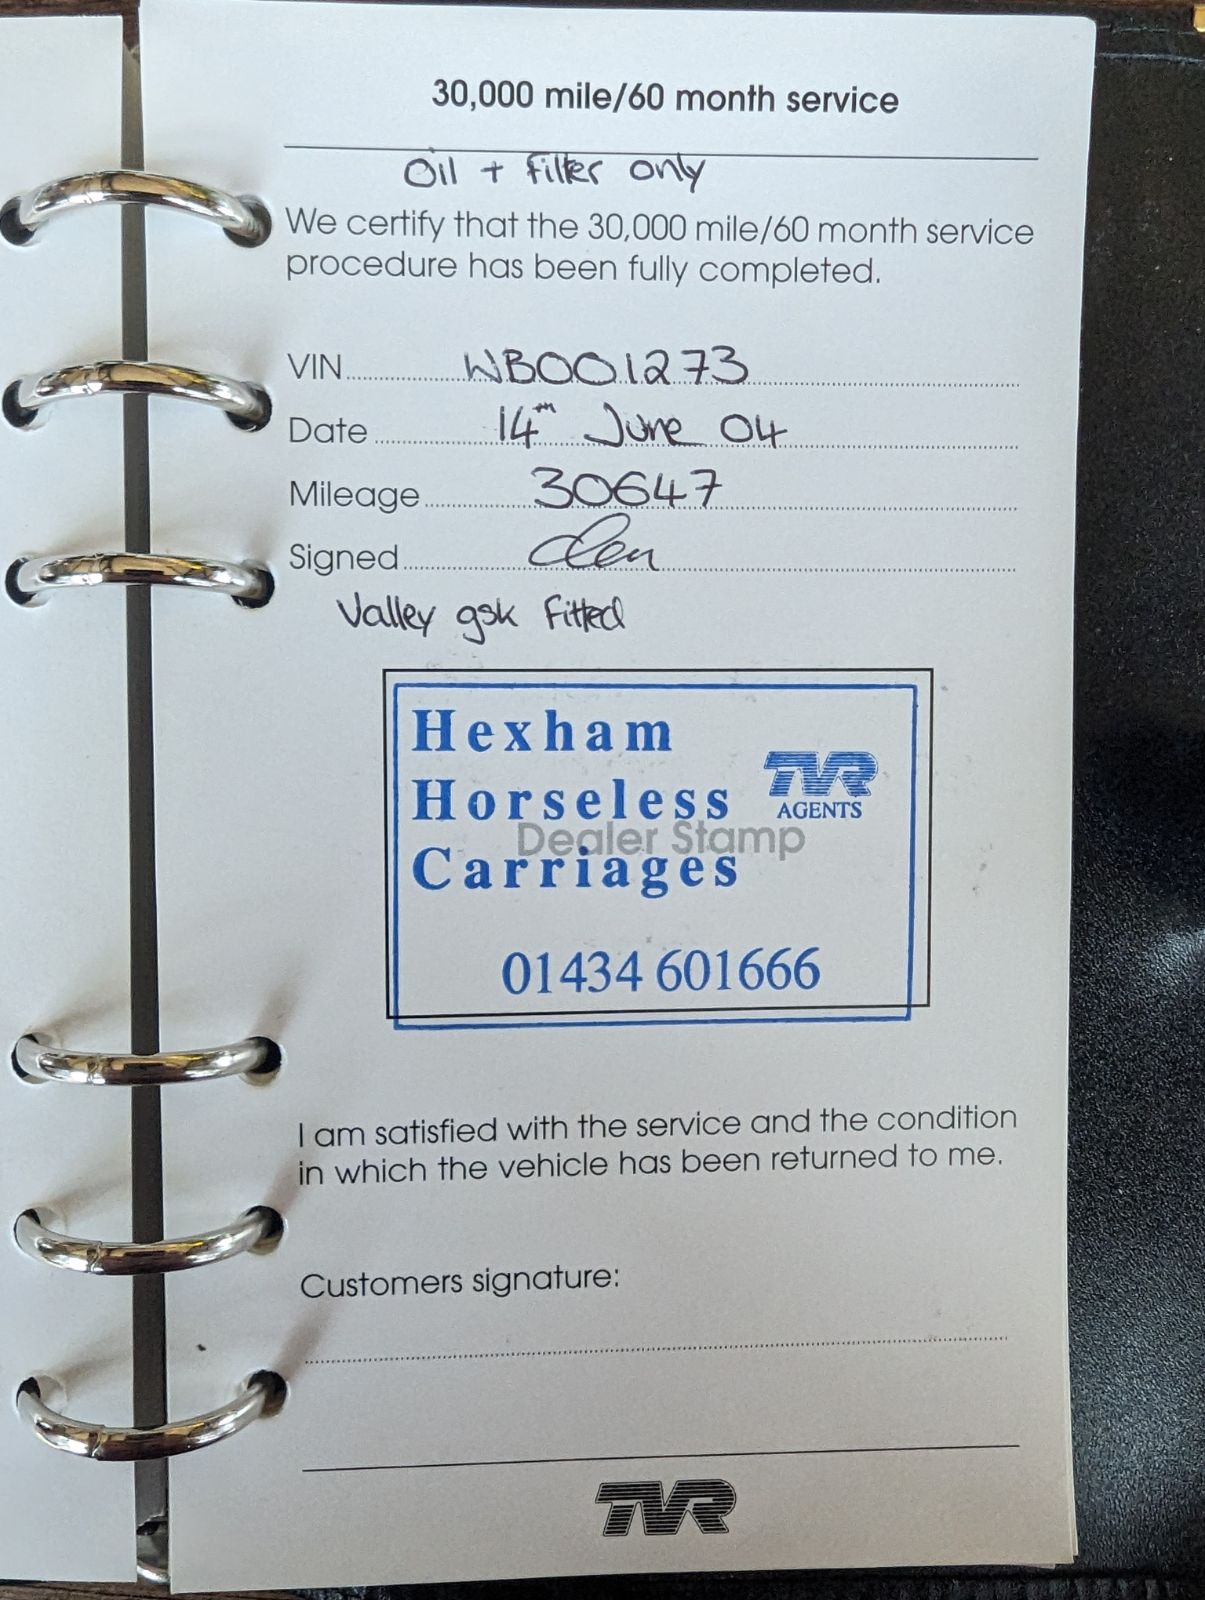 30,000 mile/60 month service
Oil + filter only
We certify that the 30,000 mile/60 month service
procedure has been fully completed.
VIN WB001273
Date 14th June 04
Mileage 30647
Signed
Valley gsk Fitted
Hexham
Horseless
Carriages
TVR
AGENTS
Dealer Stamp
01434 601666
I am satisfied with the service and the condition
in which the vehicle has been returned to me.
Customers signature:
TVR